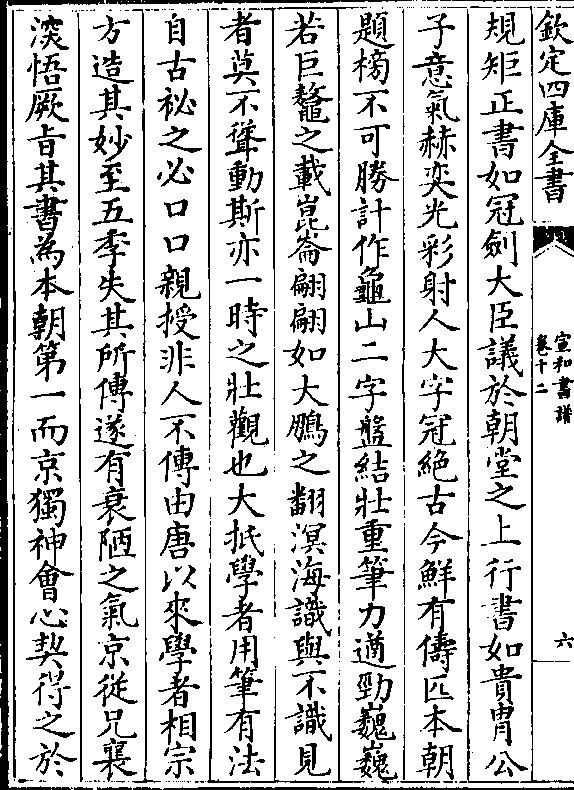 欽定四庫全書
宣和書譜
卷十二
六
規矩正書如冠劍大臣議於朝堂之上行書如貴胄公
子意氣赫奕光彩射人大字冠絕古今鮮有儔匹本朝
題榜不可勝計作龜山二字盤結壯重筆力遒勁巍巍
若巨鼇之載崑崙翩翩如大鵬之翻溟海識與不識見
者莫不聳動斯亦一時之壯觀也大抵學者用筆有法
自古祕之必口口親授非人不傳由唐以來學者相宗
方造其妙至五季失其所傳遂有衰陋之氣京從兄襄
深悟厥旨其書為本朝第一而京獨神會心契得之於